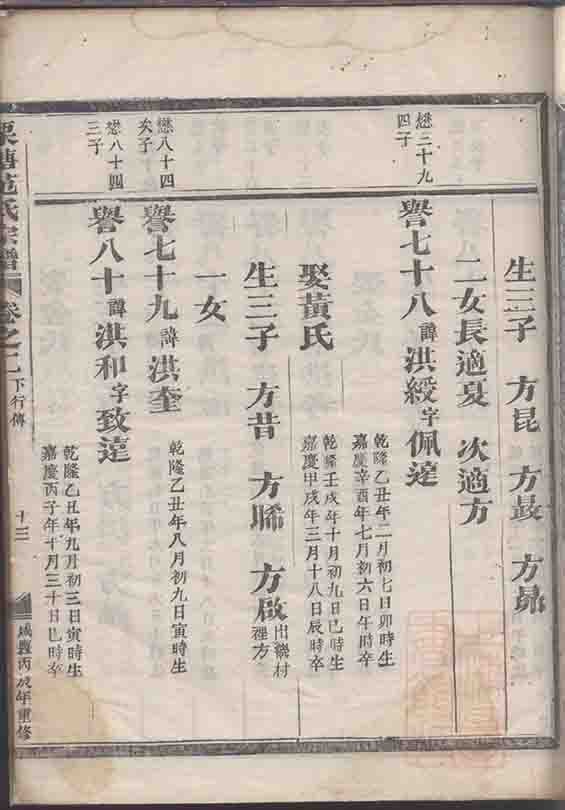 生三子 方昆 方晸 方昴
二女長適夏 次適方
懋三十九四子
譽七十八諱洪綬字佩逹
乾隆乙丑年二月初七日卯時生
嘉慶辛酉年七月初六日午時卒
娶黃氏
乾隆壬戌年十月初九日巳時生
嘉慶甲戌年三月十八日辰時卒
生三子 方昔 方睎 方啟
一女
懋八十四次子
譽七十九諱洪奎
乾隆乙丑年八月初九日寅時生
懋八十四三子
譽八十諱洪和字致逹
乾隆乙丑年九月初三日寅時生
嘉慶丙子年十月三十日巳時卒
范氏宗譜 卷之二 下行傳
咸豐丙辰年重修